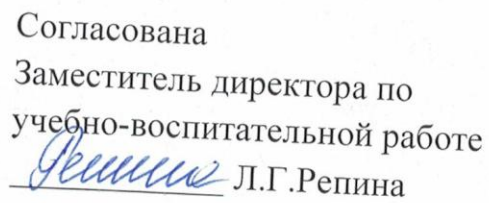 Согласована
Заместитель директора по
учебно-воспитательной работе
Репина Л.Г.Репина